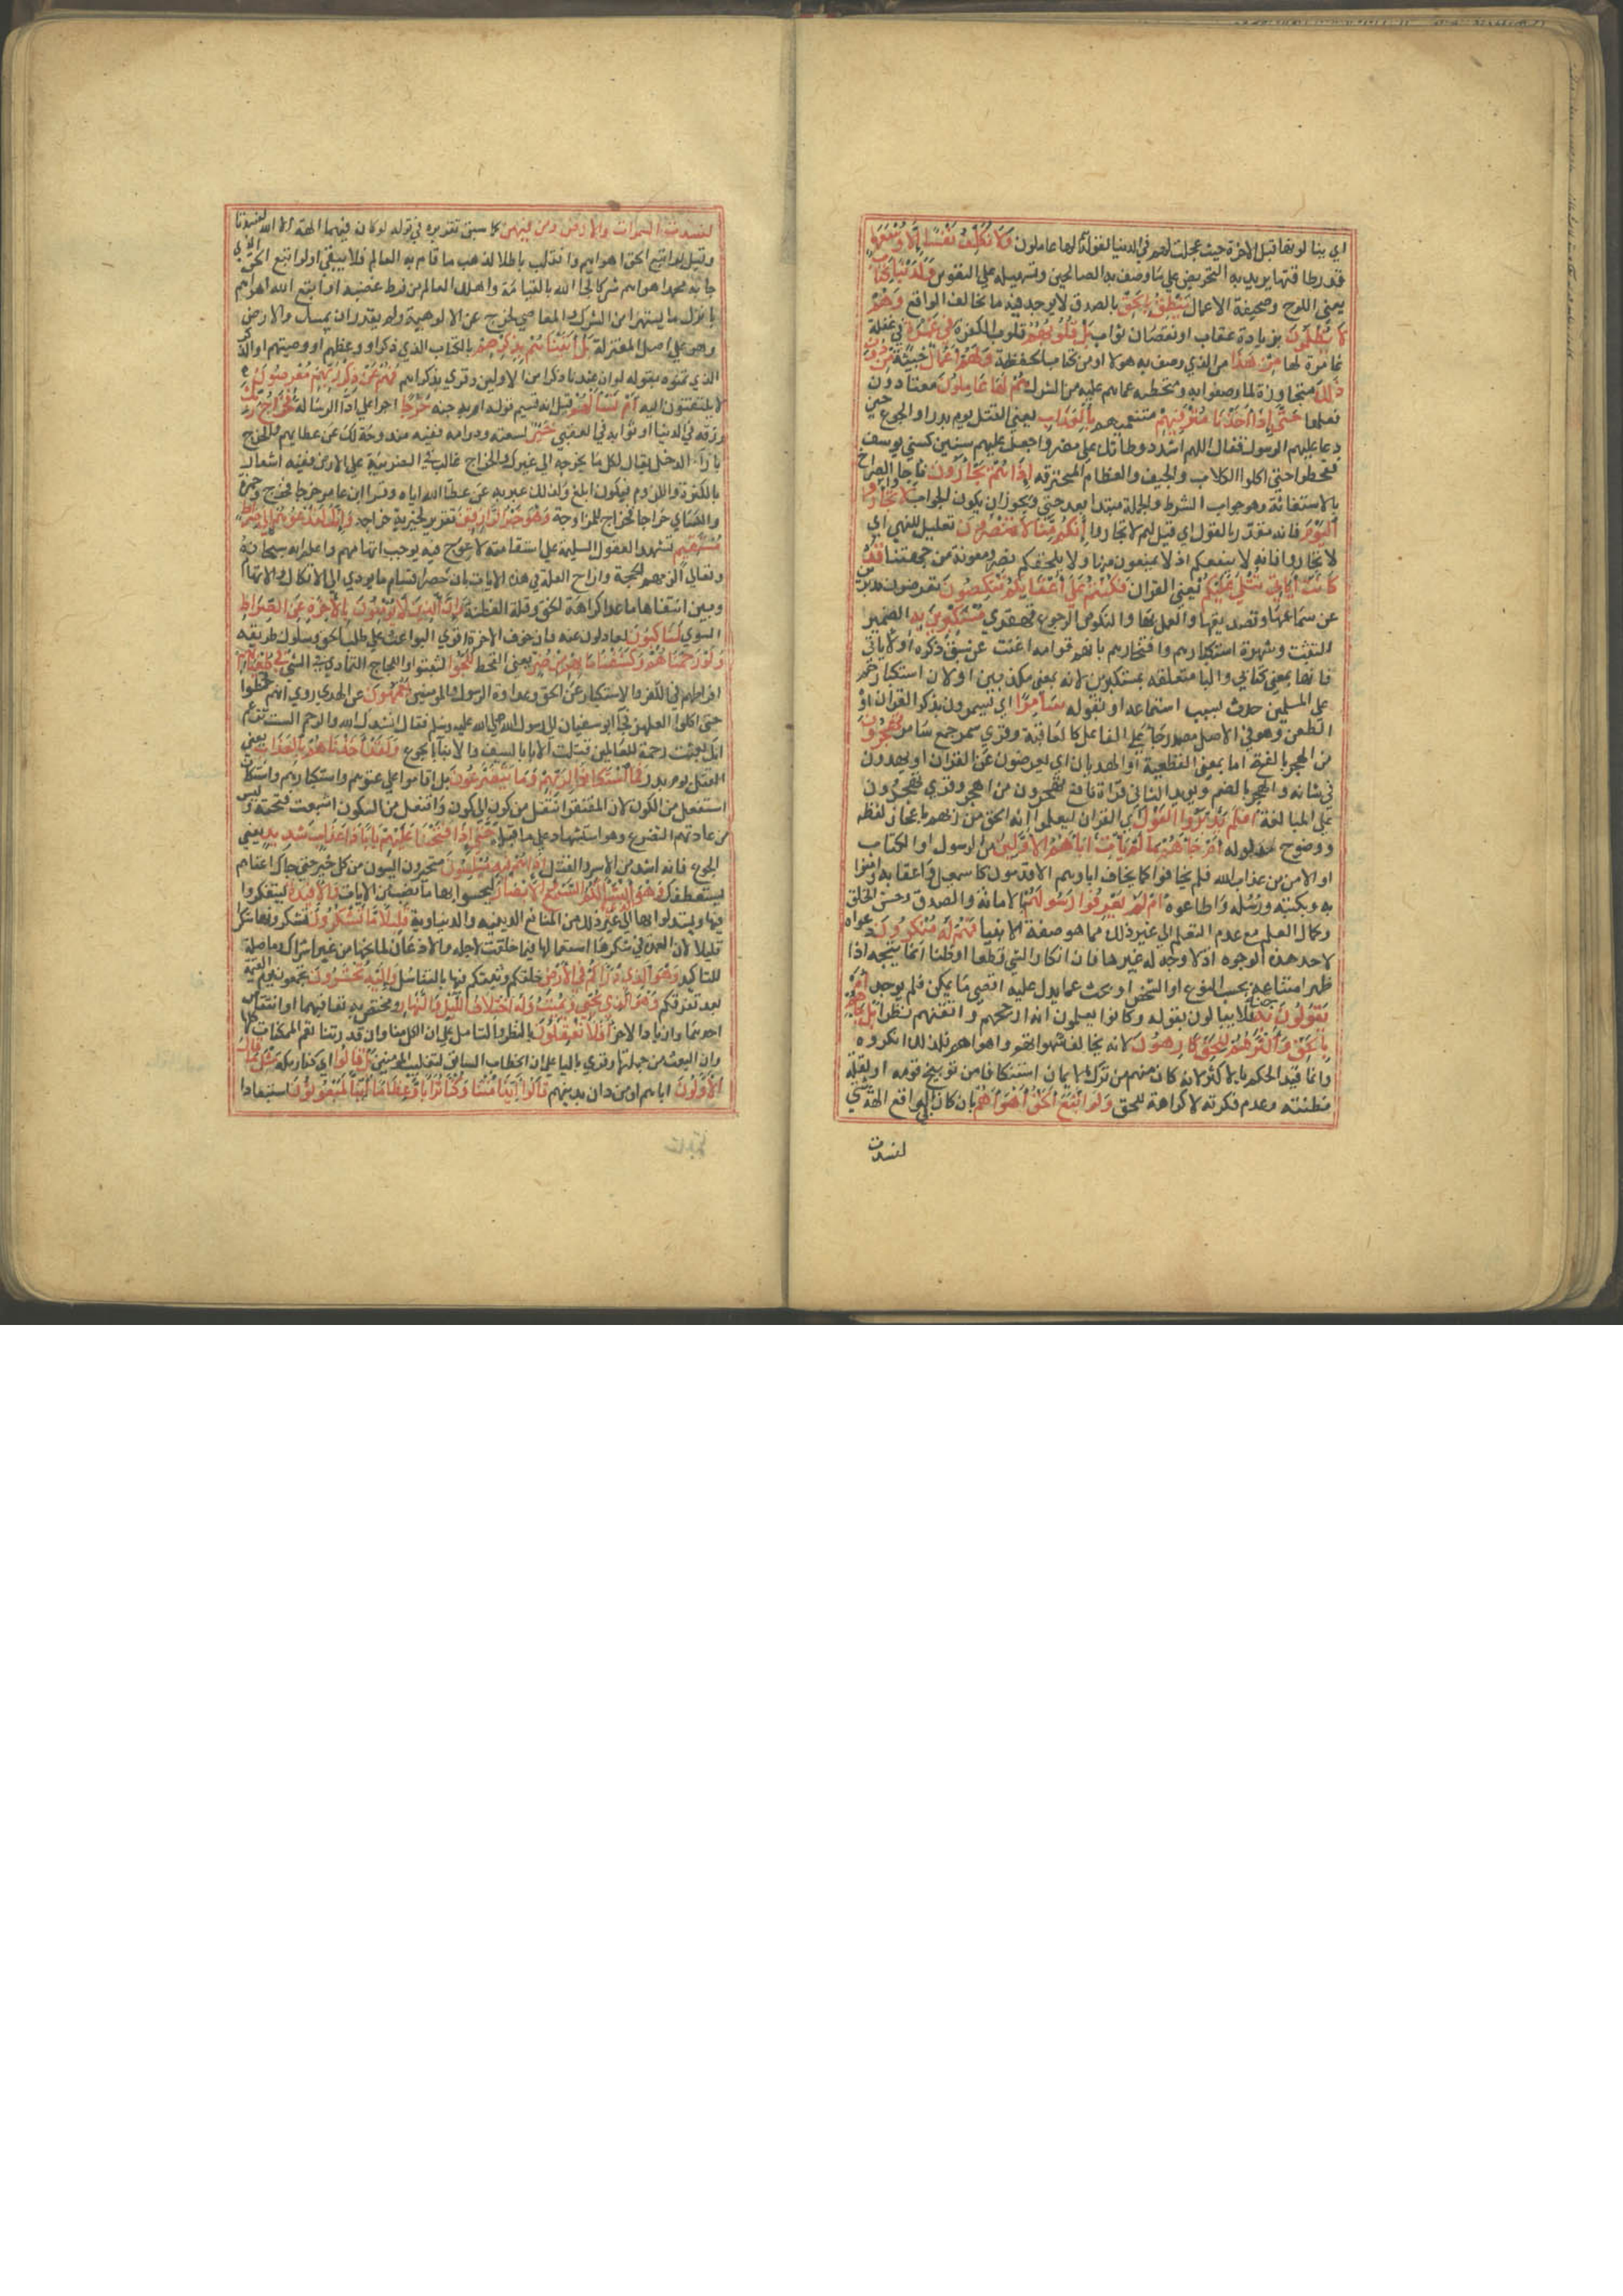 اي ينالونها قبل الاخرة حيث عجلت لهم في الدنيا لقوله لها عاملون وَلَا نُكَلِّفُ نَفْسًا إِلَّا وُسْعَهَا
قدر طاقتها يريد به التحريض على ما وصف به الصالحين وتسهيله على النفوس وَلَدَيْنَا كِتَابٌ
يعني اللوح او صحيفة الاعمال يَنْطِقُ بِالْحَقِّ بالصدق لا يوجد فيه ما يخالف الواقع وَهُمْ
لَا يُظْلَمُونَ بزيادة عقاب او نقصان ثواب بَلْ قُلُوبُهُمْ قلوب الكفرة فِي غَمْرَةٍ في غفلة
غامرة لها مِنْ هَذَا من الذي وصف به هولا او من كتاب الحفظة وَلَهُمْ أَعْمَالٌ خبيثة مِنْ دُونِ
ذَلِكَ متجاوزة لما وصفوا به ومتخطية عما هم عليه من الشرك هُمْ لَهَا عَامِلُونَ معتادون
فعلها حَتَّى إِذَا أَخَذْنَا مُتْرَفِيهِمْ متنعميهم بِالْعَذَابِ يعني القتل يوم بدر او الجوع حين
دعا عليهم الرسول فقال اللهم اشدد وطاتك على مضر واجعل عليهم سنين كسني يوسف
فقحطوا حتى اكلوا الكلاب والجيف والعظام المحترقة إِذَا هُمْ يَجْأَرُونَ فاجاوا الصراخ
بالاستغاثة وهو جواب الشرط والجملة مبتدا بعد حتى ويجوز ان يكون الجواب لَا تَجْأَرُوا
الْيَوْمَ فانه مقدر بالقول اي قيل لهم لا تجاروا إِنَّكُمْ مِنَّا لَا تُنْصَرُونَ تعليل للنهي اي
لا تجاروا فانه لا ينفعكم اذ لا تمنعون منا ولا يلحقكم نصر ومعونة من جهتنا قَدْ
كَانَتْ آيَاتِي تُتْلَى عَلَيْكُمْ يعني القران فَكُنْتُمْ عَلَى أَعْقَابِكُمْ تَنْكِصُونَ تعرضون مدبرين
عن سماعها وتصديقها والعمل بها والنكوص الرجوع قهقرى مُسْتَكْبِرِينَ بِهِ الضمير
للبيت وشهرة استكبارهم وافتخارهم بانهم قوامه اغنت عن سبق ذكره او لاياتي
فانها بمعنى كتابي والبا متعلقة بمستكبرين لانه بمعنى مكذبين او لان استكبارهم
على المسلمين حدث بسبب استماعه او بقوله سَامِرًا اي تسمرون بذكر القران او
الطعن وهو في الاصل مصدر جا على الفاعل كالعاقبة وقري سمر جمع سامر تَهْجُرُونَ
من الهجر بالفتح اما بمعنى القطيعة او الهذيان اي تعرضون عن القران او تهذون
في شانه والهجر بالضم ويويد الثاني قراة نافع تهجرون من اهجر وقري تهجرون
على المبالغة أَفَلَمْ يَدَّبَّرُوا الْقَوْلَ اي القران ليعلموا انه الحق من ربهم باعجاز لفظه
ووضوح مدلوله أَمْ جَاءَهُمْ مَا لَمْ يَأْتِ آبَاءَهُمُ الْأَوَّلِينَ من الرسول او الكتاب
او الامن من عذاب الله فلم يخافوا كما يخاف اباوهم الاقدمون كاسمعيل واعقابه وامنوا
به وبكتبه ورسله واطاعوه أَمْ لَمْ يَعْرِفُوا رَسُولَهُمْ بالامانة والصدق وحسن الخلق
وكمال العلم مع عدم التعلم الى غير ذلك مما هو صفة الانبيا فَهُمْ لَهُ مُنْكِرُونَ دعواه
لاحد هذه الوجوه اذ لا وجه له غيرها فان انكار الشي قطعا او ظنا انما يتجه اذا
ظهر امتناعه بحسب النوع او الشخص او بحث عما يدل عليه اقصى ما يمكن فلم يوجد أَمْ
يَقُولُونَ بِهِ جِنَّةٌ فلا يبالون بقوله وكانوا يعلمون انه ارجحهم واتقنهم نظرا بَلْ جَاءَهُمْ
بِالْحَقِّ وَأَكْثَرُهُمْ لِلْحَقِّ كَارِهُونَ لانه يخالف شهواتهم واهواهم فلذلك انكروه
وانما قيد الحكم بالاكثر لانه كان منهم من ترك الايمان استنكافا من توبيخ قومه او لقلة
فطنته وعدم فكرته لا كراهة للحق وَلَوِ اتَّبَعَ الْحَقُّ أَهْوَاءَهُمْ بان كان في الواقع الهة شتى
لفسدت
لَفَسَدَتِ السَّمَاوَاتُ وَالْأَرْضُ وَمَنْ فِيهِنَّ كما سبق تقديره في قوله لو كان فيهما الهة الا الله لفسدتا
وقيل لو اتبع الحق اهواهم وانقلب باطلا لذهب ما قام به العالم فلا يبقى او لو اتبع الحق الذي
جا به محمد اهواهم شركا لجا الله بالقيامة واهلك العالم من فرط غضبه او لو اتبع الله اهواهم
بان انزل ما يشتهون من الشرك والمعاصي لخرج عن الالوهية ولم يقدر ان يمسك والارض
وهو على اصل المعتزلة بَلْ أَتَيْنَاهُمْ بِذِكْرِهِمْ بالكتاب الذي هو ذكرهم او وعظهم او وصيتهم او الذكر
الذي تمنوه بقولهم لو ان عندنا ذكرا من الاولين وقري بذكراهم فَهُمْ عَنْ ذِكْرِهِمْ مُعْرِضُونَ
لا يلتفتون اليه أَمْ تَسْأَلُهُمْ قيل انه قسيم قوله ام به جنة خَرْجًا اجرا على ادا الرسالة فَخَرَاجُ رَبِّكَ
رزقه في الدنيا او ثوابه في العقبى خَيْرٌ لسعته ودوامه ففيه مندوحة لك عن عطايهم والخرج
بازا الدخل يقال لكل ما يخرجه الى غيرك والخراج غالب في الضريبة على الارض ففيه اشعار
بالكثرة واللزوم فيكون ابلغ ولذلك عبر به عن عطا الله اياه وقرا ابن عامر خرجا فخرج وحمزة
والكساي خراجا فخراج للمزاوجة وَهُوَ خَيْرُ الرَّازِقِينَ تقرير لخيرية خراجه وَإِنَّكَ لَتَدْعُوهُمْ إِلَى صِرَاطٍ
مُسْتَقِيمٍ تشهد العقول السليمة على استقامته لا عوج فيه يوجب اتهامهم واعلم انه سبحانه
وتعالى الزمهم الحجة وازاح العلة في هذه الايات بان حصر اقسام ما يودي الى الانكار والاتهام
وبين انتفاها ما عدا كراهة الحق وقلة الفطنة وَإِنَّ الَّذِينَ لَا يُؤْمِنُونَ بِالْآخِرَةِ عَنِ الصِّرَاطِ
السوي لَنَاكِبُونَ لعادلون عنه فان خوف الاخرة اقوى البواعث على طلب الحق وسلوك طريقه
وَلَوْ رَحِمْنَاهُمْ وَكَشَفْنَا مَا بِهِمْ مِنْ ضُرٍّ يعني القحط لَلَجُّوا لثبتوا واللجاج التمادي في الشي فِي طُغْيَانِهِمْ
افراطهم في الكفر والاستكبار عن الحق وعداوة الرسول والمومنين يَعْمَهُونَ عن الهدى روي انهم قحطوا
حتى اكلوا العلهز فجا ابو سفيان الى رسول الله صلى الله عليه وسلم فقال انشدك الله والرحم الست تزعم
انك بعثت رحمة للعالمين قتلت الابا بالسيف والابنا بالجوع وَلَقَدْ أَخَذْنَاهُمْ بِالْعَذَابِ يعني
القتل يوم بدر فَمَا اسْتَكَانُوا لِرَبِّهِمْ وَمَا يَتَضَرَّعُونَ بل اقاموا على عتوهم واستكبارهم واستكان
استفعل من الكون لان المفتقر انتقل من كون الى كون او افتعل من السكون اشبعت فتحته وليس
من عادتهم التضرع وهو استشهاد على ما قبله حَتَّى إِذَا فَتَحْنَا عَلَيْهِمْ بَابًا ذَا عَذَابٍ شَدِيدٍ يعني
الجوع فانه اشد من الاسر والقتل إِذَا هُمْ فِيهِ مُبْلِسُونَ متحيرون ايسون من كل خير حتى جاك اعتاهم
يستعطفك وَهُوَ الَّذِي أَنْشَأَ لَكُمُ السَّمْعَ وَالْأَبْصَارَ لتحسوا بها ما نصب من الايات وَالْأَفْئِدَةَ لتتفكروا
فيها وتستدلوا بها الى غير ذلك من المنافع الدينية والدنياوية قَلِيلًا مَا تَشْكُرُونَ تشكرونها شكرا
قليلا لان العمدة في شكرها استعمالها فيما خلقت لاجله والاذعان لمانحها من غير اشراك وما صلة
للتاكيد وَهُوَ الَّذِي ذَرَأَكُمْ فِي الْأَرْضِ خلقكم وبثكم فيها بالتناسل وَإِلَيْهِ تُحْشَرُونَ تجمعون يوم القيمة
بعد تفرقكم وَهُوَ الَّذِي يُحْيِي وَيُمِيتُ وَلَهُ اخْتِلَافُ اللَّيْلِ وَالنَّهَارِ ومختص به تعاقبهما او انتقاص
احدهما وازدياد الاخر أَفَلَا تَعْقِلُونَ بالنظر والتامل على ان الكل منا وان قدرتنا تعم الممكنات كلها
وان البعث من جملتها وقري باليا على ان الخطاب السابق لتغليب المومنين بَلْ قَالُوا اي كفار مكة مِثْلَ مَا قَالَ
الْأَوَّلُونَ اباهم او من دان بدينهم قَالُوا أَئِذَا مِتْنَا وَكُنَّا تُرَابًا وَعِظَامًا أَئِنَّا لَمَبْعُوثُونَ استبعادا